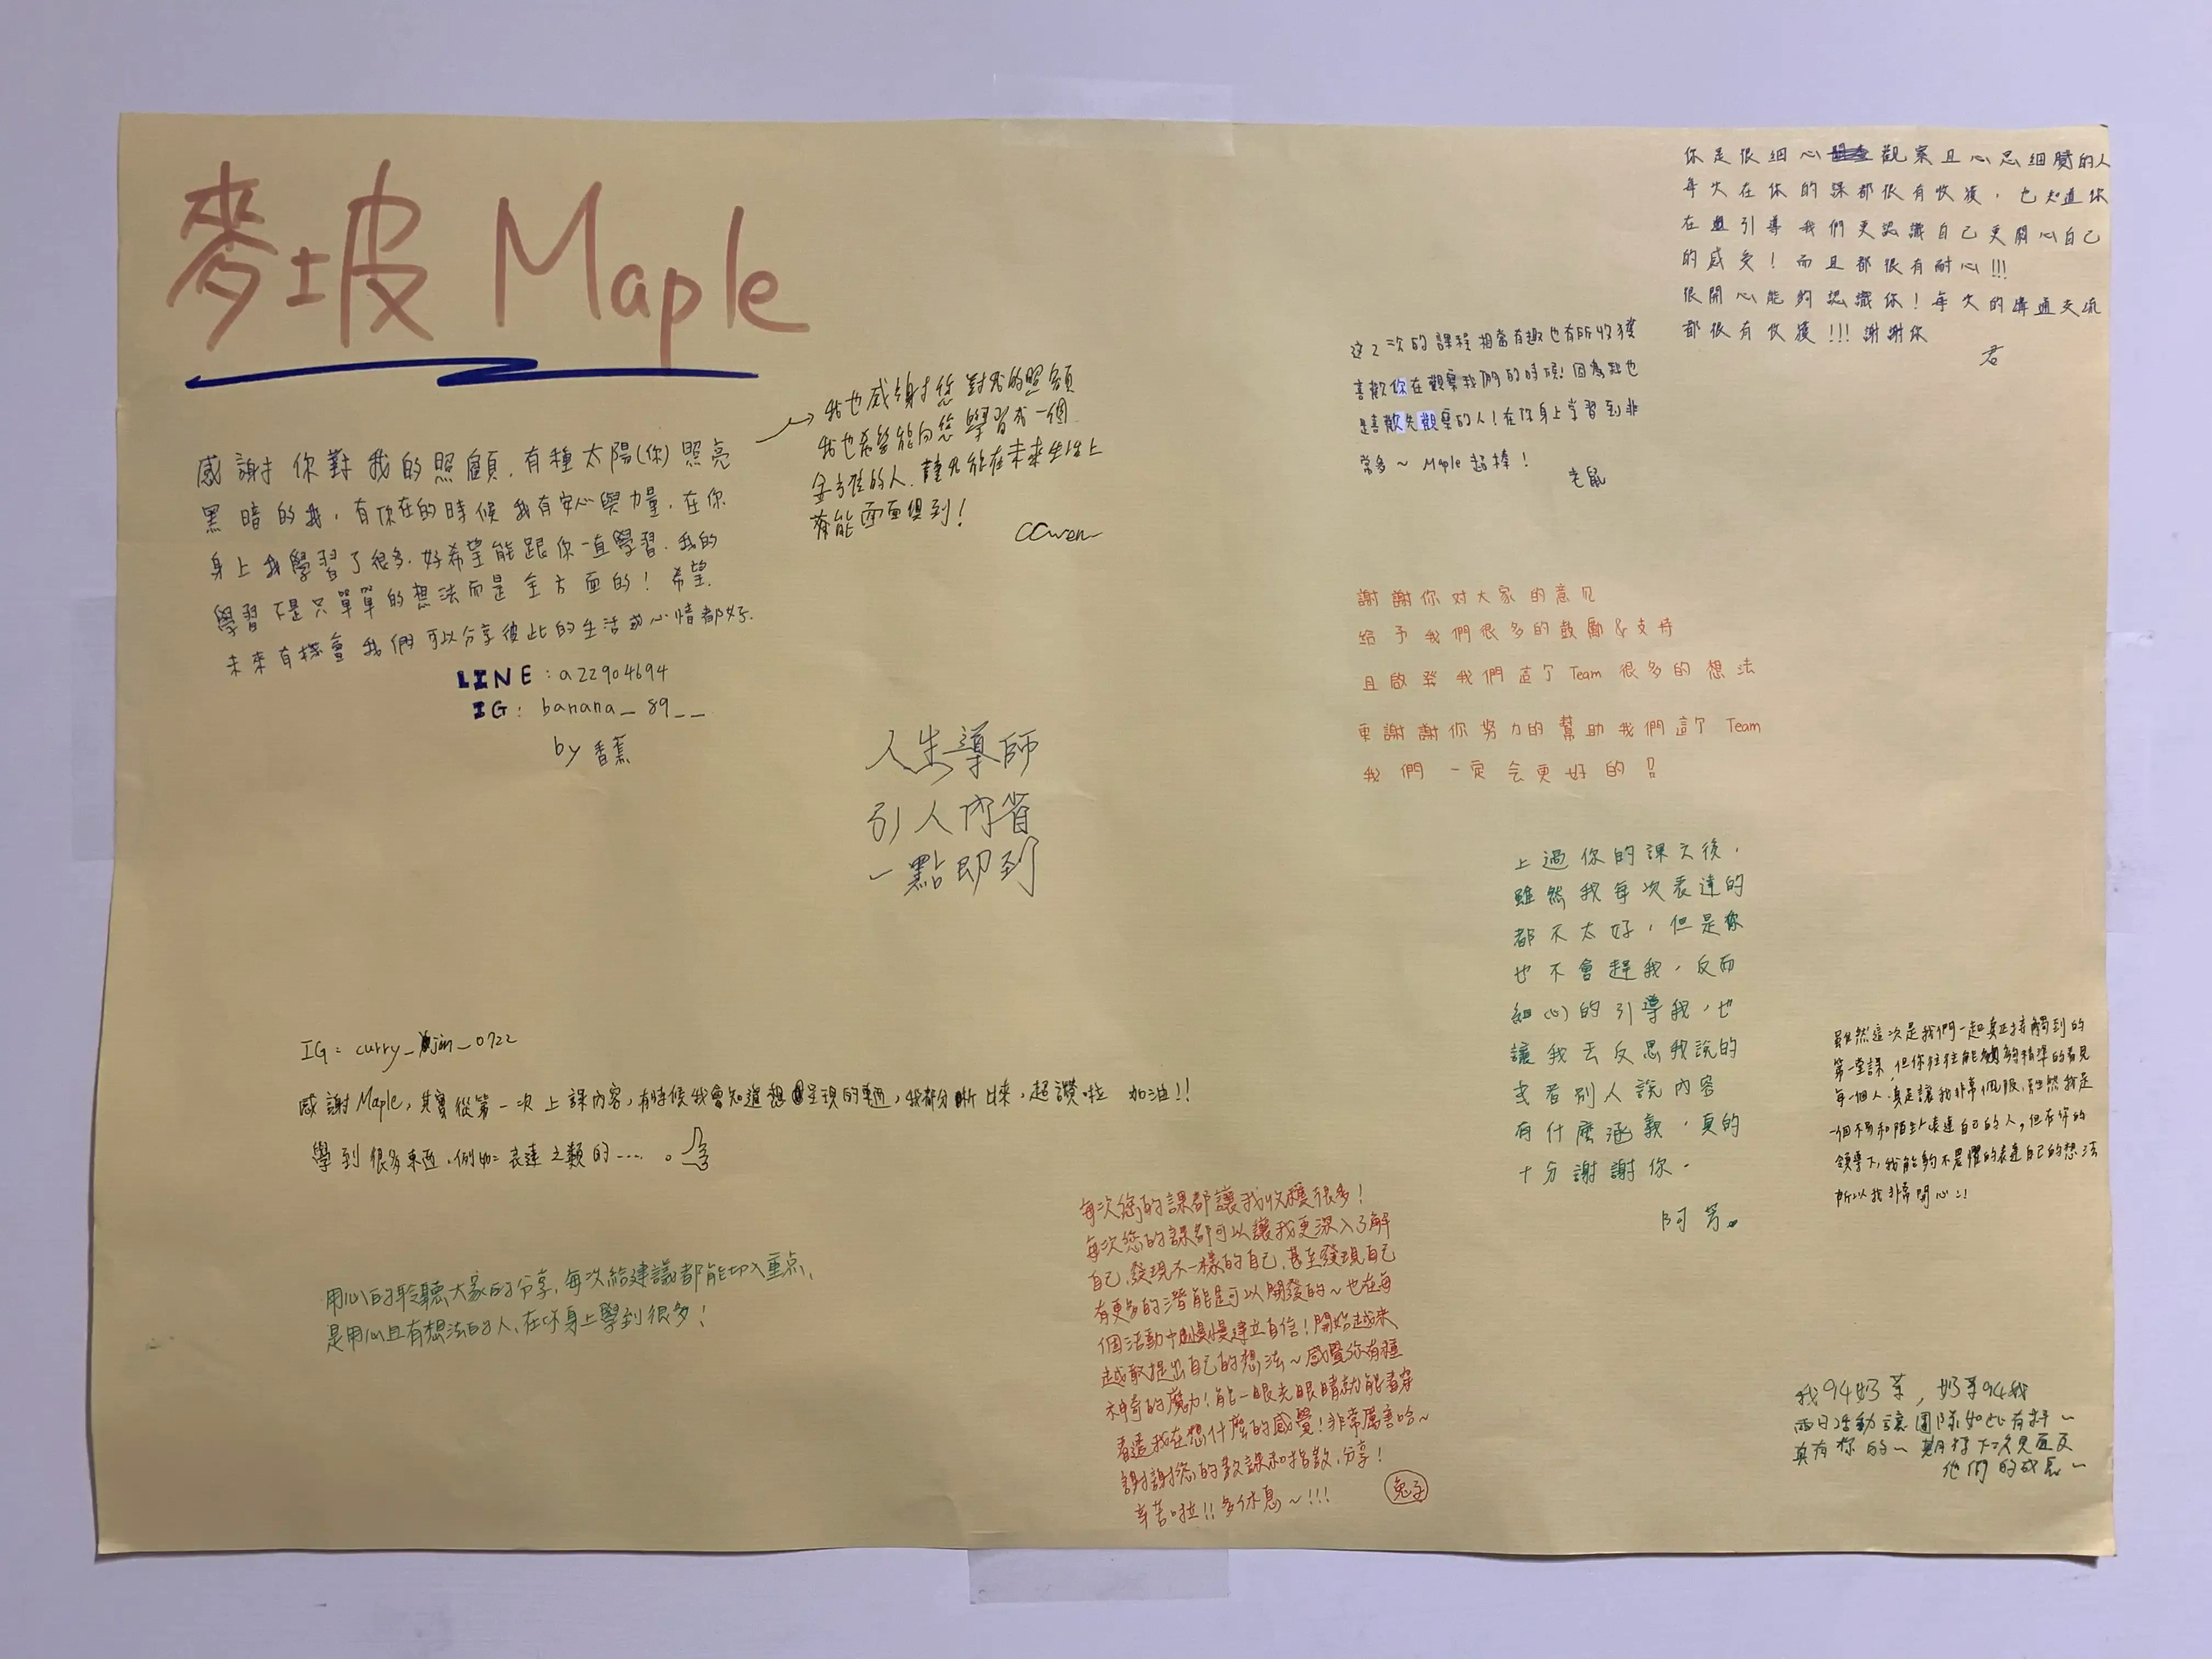 麥坡 Maple
感謝你對我的照顧.有種太陽(你)照亮
黑暗的我,有你在的時候我有安心與力量.在你
身上我學習了很多.好希望能跟你一直學習.我的
學習不是只單單的想法而是全方面的!希望
未來有機會我們可以分享彼此的生活或心情都好.
LINE:a22904694
IG:banana_89__
by 香蕉
我也感謝您對我的照顧
我也希望能向您學習成一個
全方位的人.讓我能在未來生活上
都能面面俱到!
CCwen
人生導師
引人內省
一點即到
IG:curry_jin_0722
感謝Maple,其實從第一次上課內容,有時候我會知道想呈現的東西,我都分晰出來,超讚啦 加油!!
學到很多東西,例如:表達之類的....。
用心的聆聽大家的分享,每次給建議都能切入重点,
是用心且有想法的人,在你身上學到很多!
每次您的課都讓我收穫很多!
每次您的課都可以讓我更深入了解
自己,發現不一樣的自己,甚至發現自己
有更多的潛能是可以開發的~也在每
個活動中慢慢建立自信!開始越來
越敢提出自己的想法~感覺你有種
神奇的魔力!能一眼光眼睛就能看穿
看透我在想什麼的感覺!非常厲害哈~
謝謝您的教課和指教、分享!
辛苦啦!!多休息~!!!
兔子
你是很細心觀察且心思細膩的人
每次在你的課都很有收穫,也知道你
在引導我們更認識自己更關心自己
的感受!而且都很有耐心!!!
很開心能夠認識你!每次的溝通交流
都很有收穫!!!謝謝你
君
这2次的課程相當有趣也有所收獲
喜歡你在觀察我們的時候!因為我也
是喜歡先觀察的人!在你身上學習到非
常多~Maple超棒!
老鼠
謝謝你对大家的意見
給予我們很多的鼓勵&支持
且啟發我們這个Team很多的想法
更謝謝你努力的幫助我們這个Team
我們一定会更好的!!
上過你的課之後,
雖然我每次表達的
都不太好,但是你
也不會趕我,反而
細心的引導我,也
讓我去反思我說的
或者別人說內容
有什麼涵義,真的
十分謝謝你.
阿芳
雖然這次是我們一起真正接觸到的
第一堂課,但你往往能夠精準的看見
每一個人.真是讓我非常佩服,雖然我是
一個不易和陌生人表達自己的人,但在你的
領導下,我能夠不畏懼的表達自己的想法
所以我非常開心:!
我94奶茶,奶茶94我
兩日活動讓團隊如此有料~
真有你的~期待下次見面及
他們的成長~